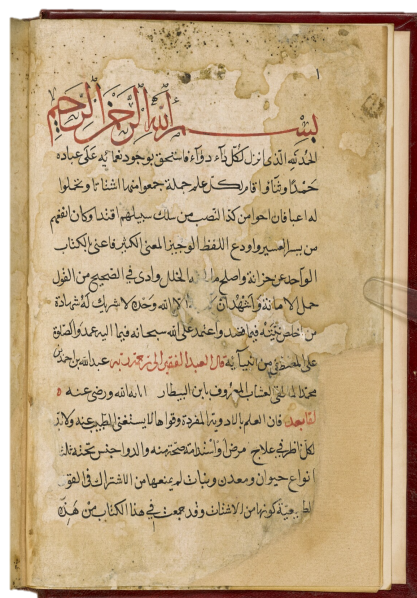 ١
بسم الله الرحمن الرحيم
الحمد لله الذي انزل لكل داء دواء فاستحق بوجود نعمائه على عباده
حمدا وثنا واقام لكل علم جملة جمعوا منها اشتاتا وتخلوا
له اعبا فان احوا من كذا النصب من سلك سبيلهم اقتدا وكان انفعهم
من يسر العسير واودع اللفظ الوجيز المعنى الكثير فاغنى الكتاب
الواحد عن خزانة واصلح الخلل وادى في الصحيح من القول
حمل الامانة واشهد ان الا الله وحده لا شريك له شهادة
من اخلص نيته فيما قصد واعتمد على الله سبحانه فيما اليه عمد والصلوة
على المصطفى من انبيائه قال العبد الفقير الى رحمة ربه عبد الله بن احمد بن
محمد المالقي العشاب المعروف بابن البيطار الله ورضى عنه
اما بعد فان العلم بالادوية المفردة وقواها لا يستغنى الطبيب عنه ولا بد
لكل ناظر في علاج مرض او استدامة صحة منه والدواجنس تحته ثلثة
انواع حيوان ومعدن ونبات لم يمنعها من الاشتراك في القوى
الطبيعية كونها من الاشتات وقد جمعت في هذا الكتاب من هذه